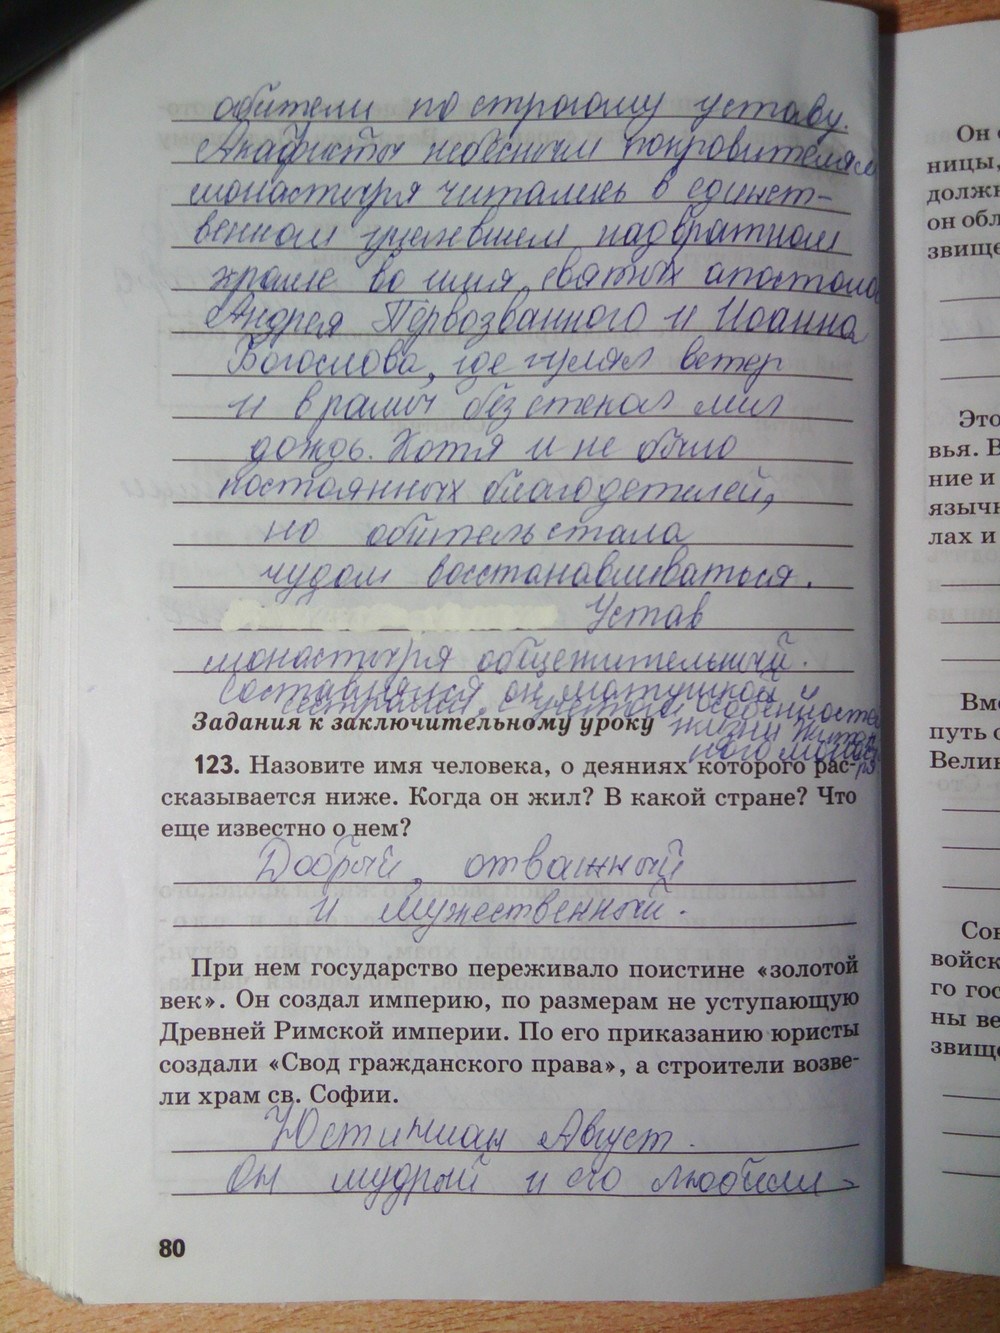 обители по строгому уставу.
Акафисты небесным покровителям
монастыря читались в единст-
венном уцелевшем надвратном
храме во имя святых апостола
Андрея Первозванного и Иоанна
Богослова, где гулял ветер
и в рамы без стекол лил
дождь. Хотя и не было
постоянных благодетелей,
но обитель стала
чудом восстанавливаться.
Устав
монастыря общежительный.
Составлялся он матушкой и
сестрами, с учетом особенностей
жизни
ного
Задания к заключительному уроку
123. Назовите имя человека, о деяниях которого рас-
сказывается ниже. Когда он жил? В какой стране? Что
еще известно о нем?
Добрый, отважный
и мужественный.
При нем государство переживало поистине «золотой
век». Он создал империю, по размерам не уступающую
Древней Римской империи. По его приказанию юристы
создали «Свод гражданского права», а строители возве-
ли храм св. Софии.
Юстиниан Август.
Он мудрый и его любили
80
Он
ницы,
должн
он обл
звище
Это
вья. В
ние и
языч
лах и
Вме
путь с
Велик
Сов
войск
го гос
ны ве
звище